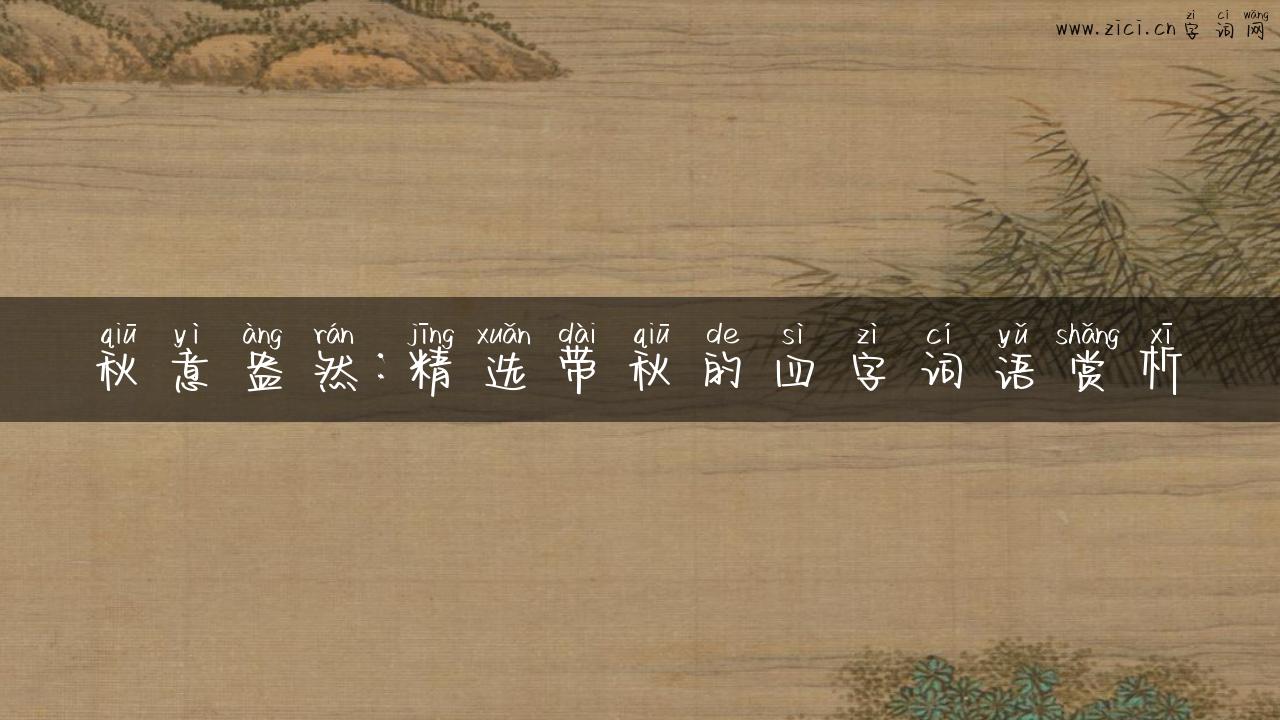 zì cí wǎng
www.zici.cn字词网
qiū yì àng rán jīng xuǎn dài qiū de sì zì cí yǔ shǎng xī
秋意盎然:精选带秋的四字词语赏析